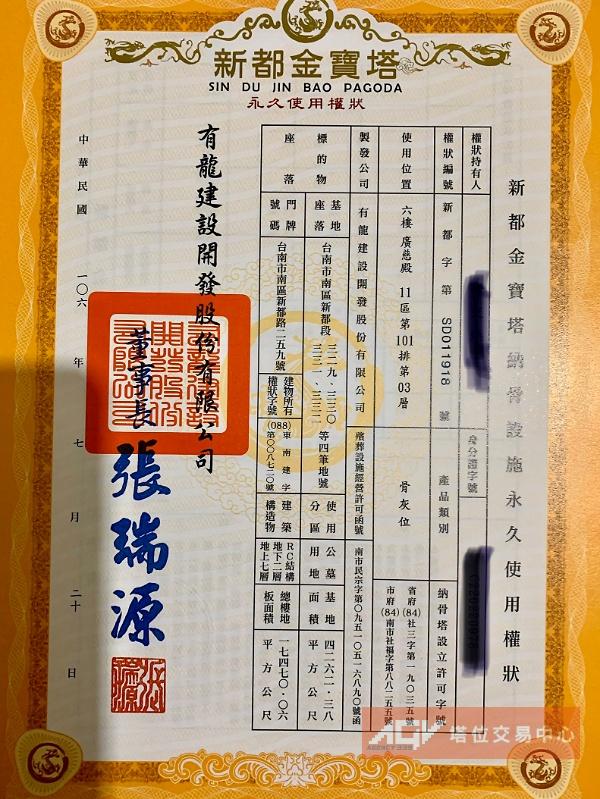 新都金寶塔
SIN DU JIN BAO PAGODA
永久使用權狀
新都金寶塔納骨設施永久使用權狀
權狀持有人
身分證字號
權狀編號
新都字第 SD011918 號
產品類別
納骨塔設立許可字號
使用位置
六樓 廣慈殿 11區第101排第03層
骨灰位
省府(84)社三字第一九○三五號
市府(84)南市社福字第八八二五五號
製發公司
有龍建設開發股份有限公司
殯葬設施經營許可函號
南市民宗字第○九五一○五一六八九○號函
標的物
座落
基地座落
台南市南區新都段 三二九、三三○
三三一、三三二 等四筆地號
使用分區
公墓用地
基地面積
四二六二.三八平方公尺
門牌號碼
台南市南區新都路二五九號
建物所有權狀字號
(088)東南建字
第○○八七二○號
建築構造物
RC結構
地下二層
地上七層
總樓地板面積
一七四七○.○六平方公尺
有龍建設開發股份有限公司
董事長 張瑞源
中華民國 一○六 年 七 月 二十 日
AGV 塔位交易中心